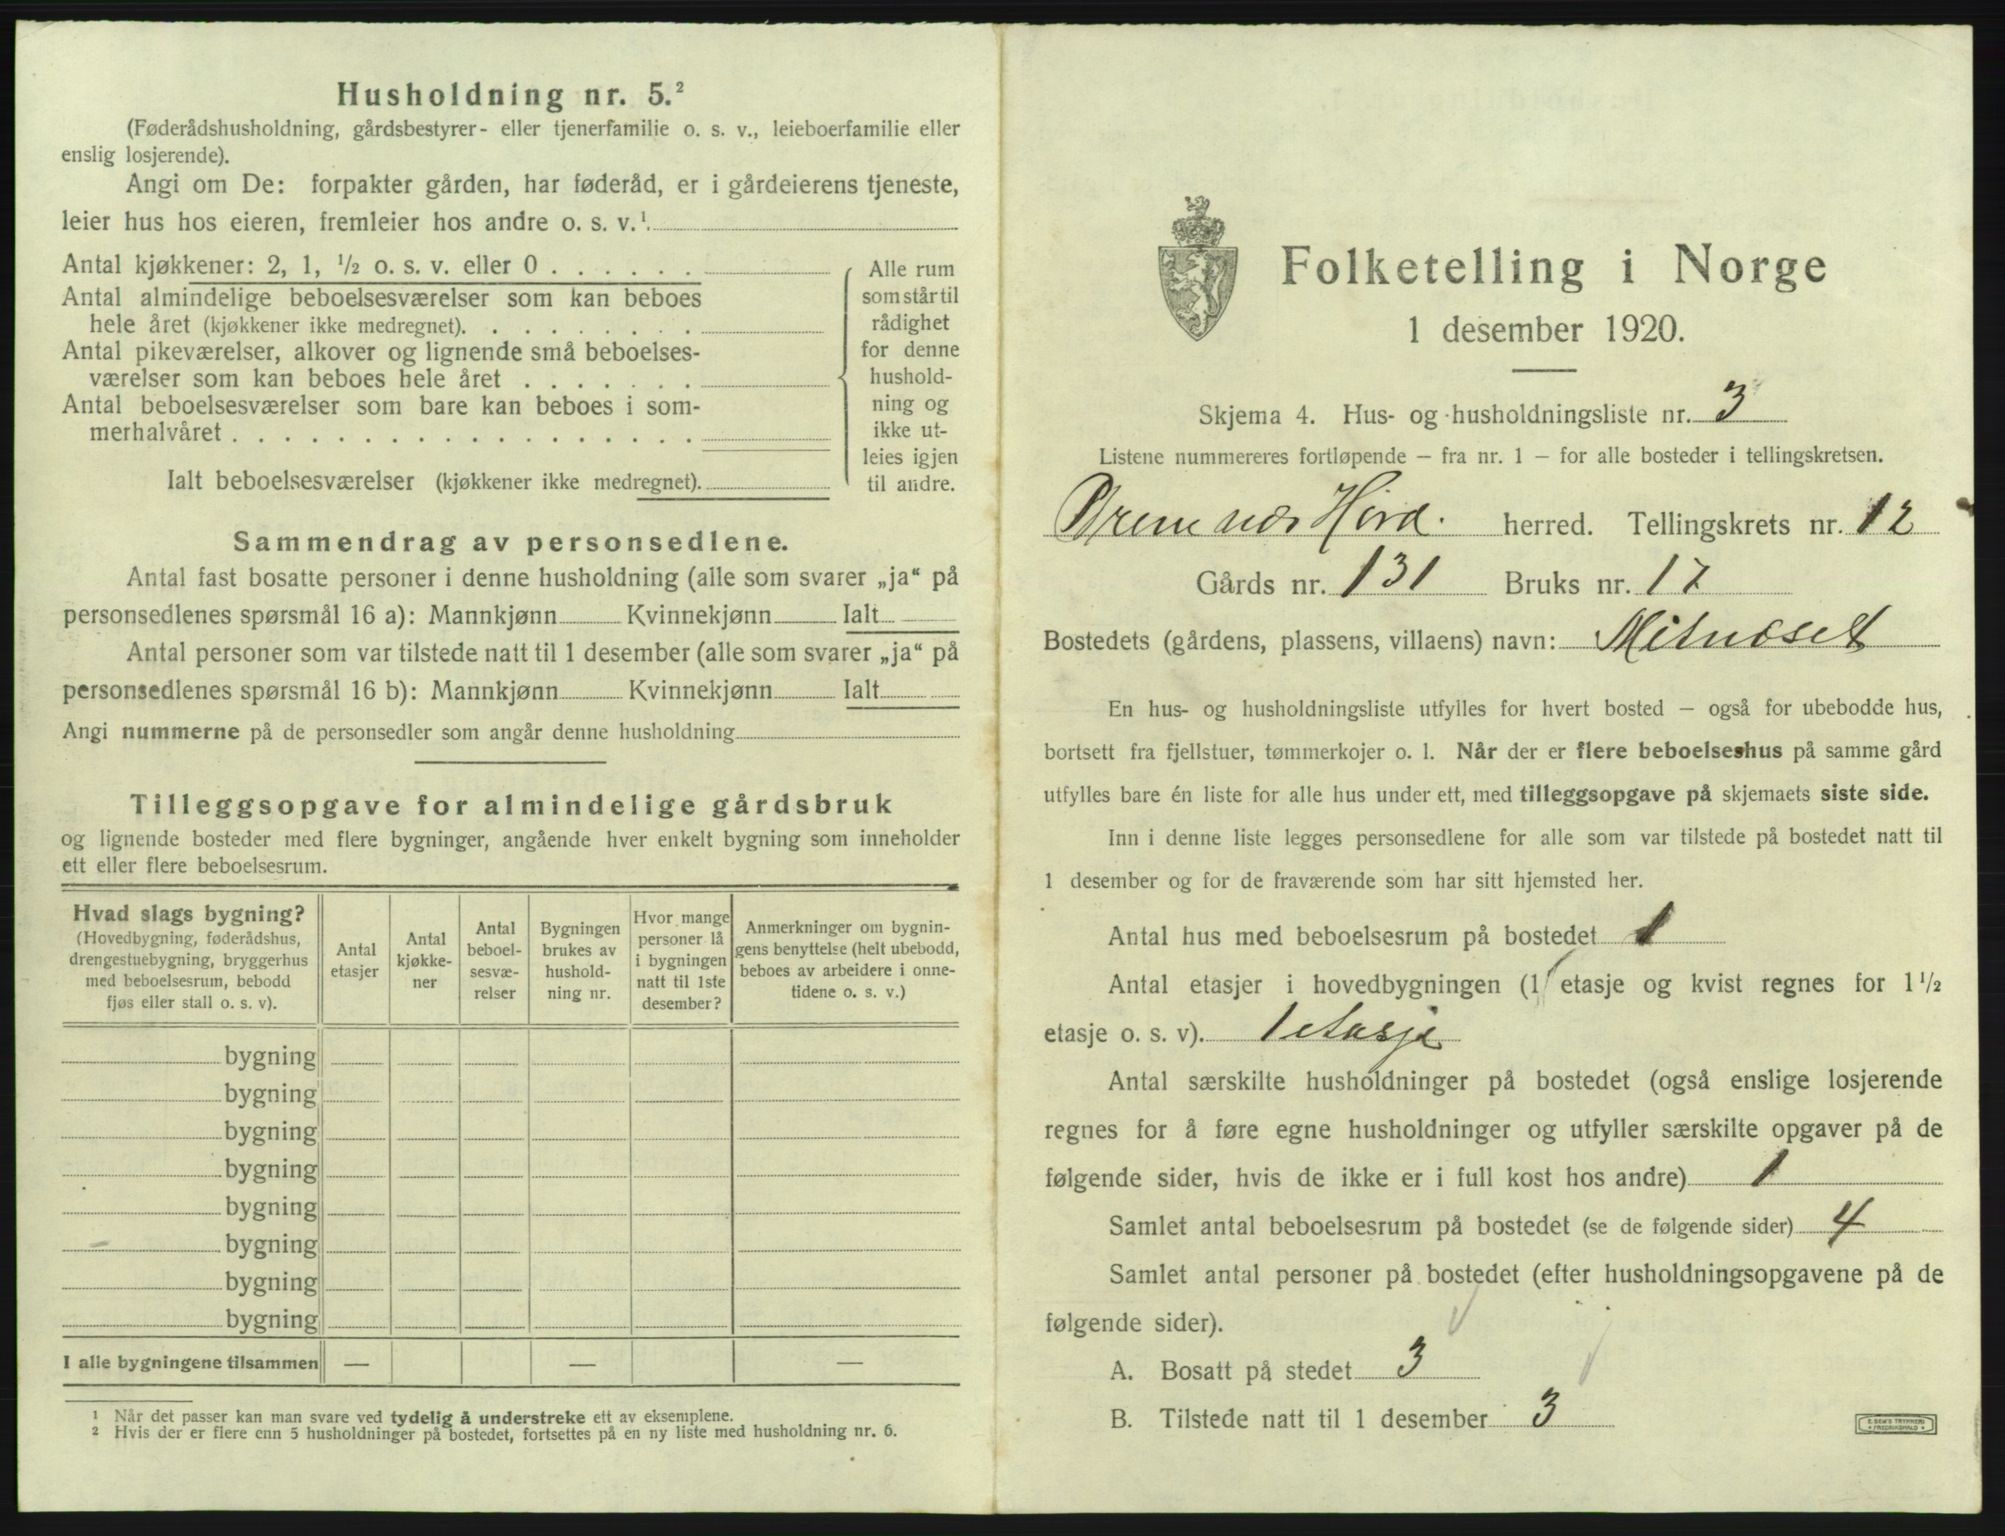 Husholdning nr. 5.²
(Føderådshusholdning, gårdsbestyrer- eller tjenerfamilie o. s. v., leieboerfamilie eller
enslig losjerende).
Angi om De: forpakter gården, har føderåd, er i gårdeierens tjeneste,
leier hus hos eieren, fremleier hos andre o. s. v.¹
Antal kjøkkener: 2, 1, ½ o. s. v. eller 0
Antal almindelige beboelsesværelser som kan beboes
hele året (kjøkkener ikke medregnet).
Antal pikeværelser, alkover og lignende små beboelses-
værelser som kan beboes hele året
Antal beboelsesværelser som bare kan beboes i som-
merhalvåret
Ialt beboelsesværelser (kjøkkener ikke medregnet).
Alle rum
som står til
rådighet
for denne
hushold-
ning og
ikke ut-
leies igjen
til andre.
Sammendrag av personsedlene.
Antal fast bosatte personer i denne husholdning (alle som svarer „ja“ på
personsedlenes spørsmål 16 a): Mannkjønn Kvinnekjønn Ialt
Antal personer som var tilstede natt til 1 desember (alle som svarer „ja“ på
personsedlenes spørsmål 16 b): Mannkjønn Kvinnekjønn Ialt
Angi nummerne på de personsedler som angår denne husholdning
Tilleggsopgave for almindelige gårdsbruk
og lignende bosteder med flere bygninger, angående hver enkelt bygning som inneholder
ett eller flere beboelsesrum.
Hvad slags bygning?
(Hovedbygning, føderådshus,
drengestuebygning, bryggerhus
med beboelsesrum, bebodd
fjøs eller stall o. s. v).
Antal
etasjer
Antal
kjøkke-
ner
Antal
beboel-
sesvæ-
relser
Bygningen
brukes av
hushold-
ning nr.
Hvor mange
personer lå
i bygningen
natt til 1ste
desember?
Anmerkninger om bygnin-
gens benyttelse (helt ubebodd,
beboes av arbeidere i onne-
tidene o. s. v.)
bygning
bygning
bygning
bygning
bygning
bygning
bygning
bygning
I alle bygningene tilsammen — — —
¹ Når det passer kan man svare ved tydelig å understreke ett av eksemplene.
² Hvis der er flere enn 5 husholdninger på bostedet, fortsettes på en ny liste med husholdning nr. 6.
Folketelling i Norge
1 desember 1920.
Skjema 4. Hus- og husholdningsliste nr. 3
Listene nummereres fortløpende – fra nr. 1 – for alle bosteder i tellingskretsen.
Bremnes Hord. herred. Tellingskrets nr. 12
Gårds nr. 131 Bruks nr. 17
Bostedets (gårdens, plassens, villaens) navn:
En hus- og husholdningsliste utfylles for hvert bosted – også for ubebodde hus,
bortsett fra fjellstuer, tømmerkojer o. l. Når der er flere beboelseshus på samme gård
utfylles bare én liste for alle hus under ett, med tilleggsopgave på skjemaets siste side.
Inn i denne liste legges personsedlene for alle som var tilstede på bostedet natt til
1 desember og for de fraværende som har sitt hjemsted her.
Antal hus med beboelsesrum på bostedet 1
Antal etasjer i hovedbygningen (1 etasje og kvist regnes for 1½
etasje o. s. v). 1 etasje
Antal særskilte husholdninger på bostedet (også enslige losjerende
regnes for å føre egne husholdninger og utfyller særskilte opgaver på de
følgende sider, hvis de ikke er i full kost hos andre) 1
Samlet antal beboelsesrum på bostedet (se de følgende sider) 4
Samlet antal personer på bostedet (efter husholdningsopgavene på de
følgende sider).
A. Bosatt på stedet 3
B. Tilstede natt til 1 desember 3